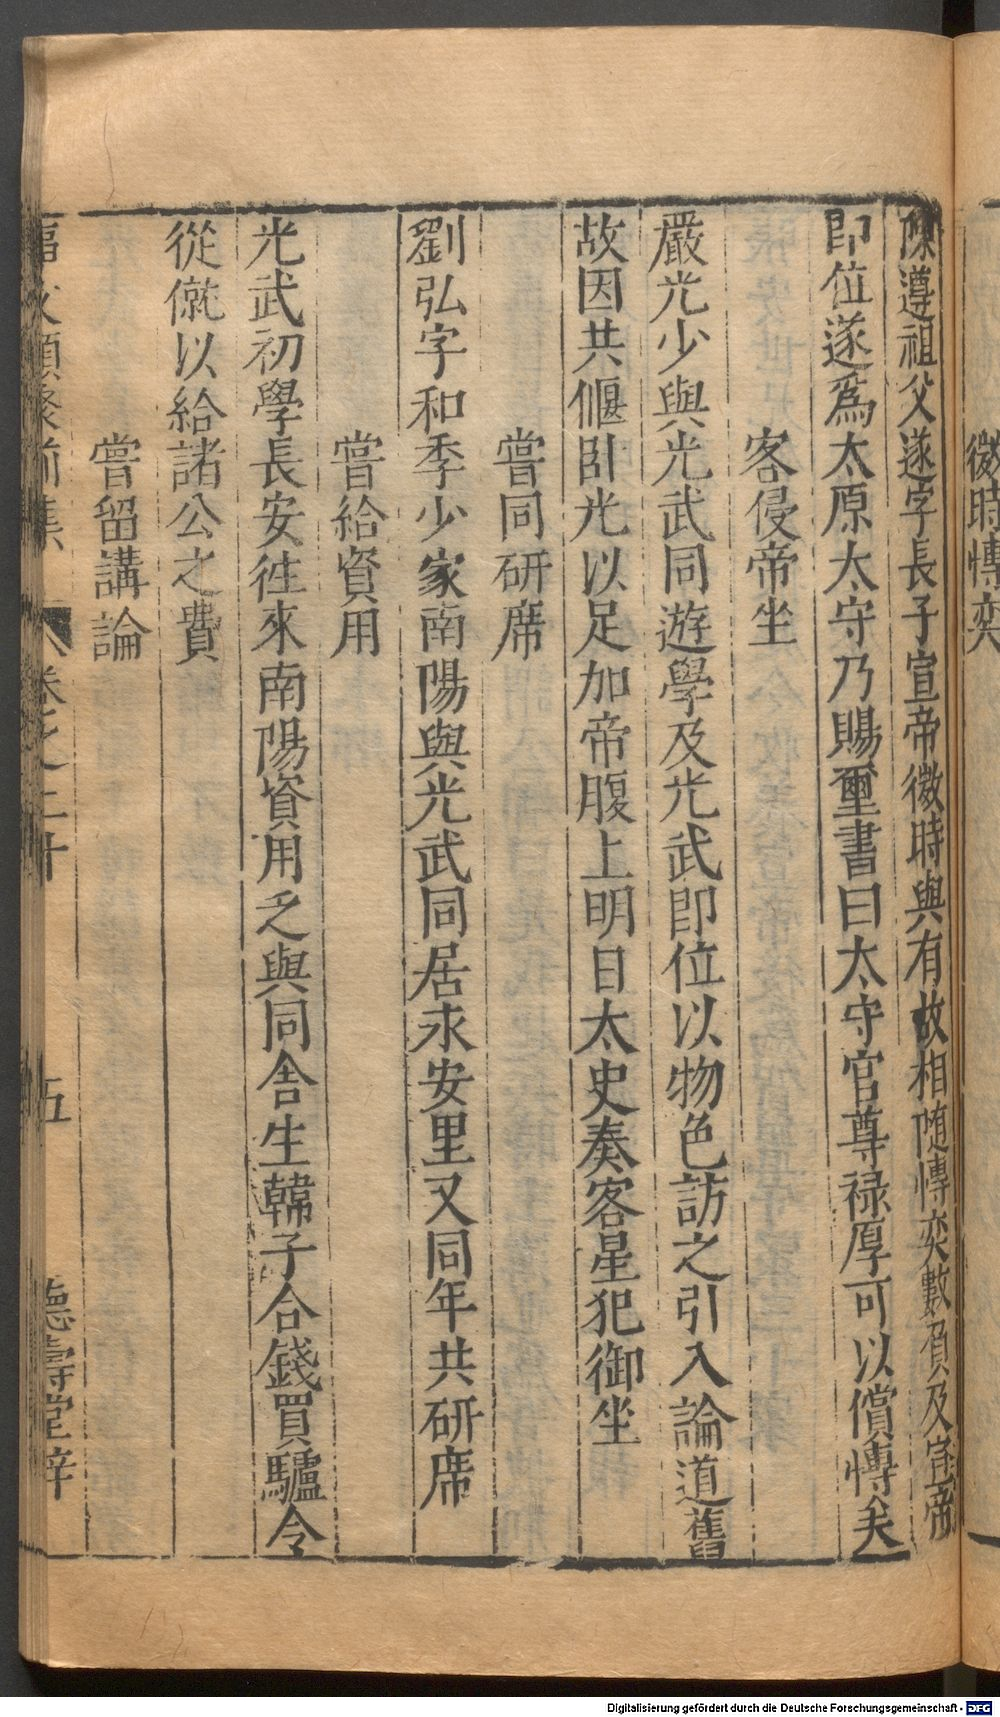 微時愽奕
陳遵祖父遂字長子宣帝微時與有故相随愽奕數負及宣帝
即位遂爲太原太守乃賜璽書曰太守官尊禄厚可以償愽矣
客侵帝坐
嚴光少與光武同遊學及光武即位以物色訪之引入論道舊
故因共偃卧光以足加帝腹上明日太史奏客星犯御坐
嘗同研席
劉弘字和季少家南陽與光武同居永安里又同年共研席
嘗給資用
光武初學長安徃來南陽資用乏與同舎生韓子合錢買驢令
從僦以給諸公之費
嘗留講論
類聚前集 卷之二十 五 德壽堂梓
Digitalisierung gefördert durch die Deutsche Forschungsgemeinschaft - DFG